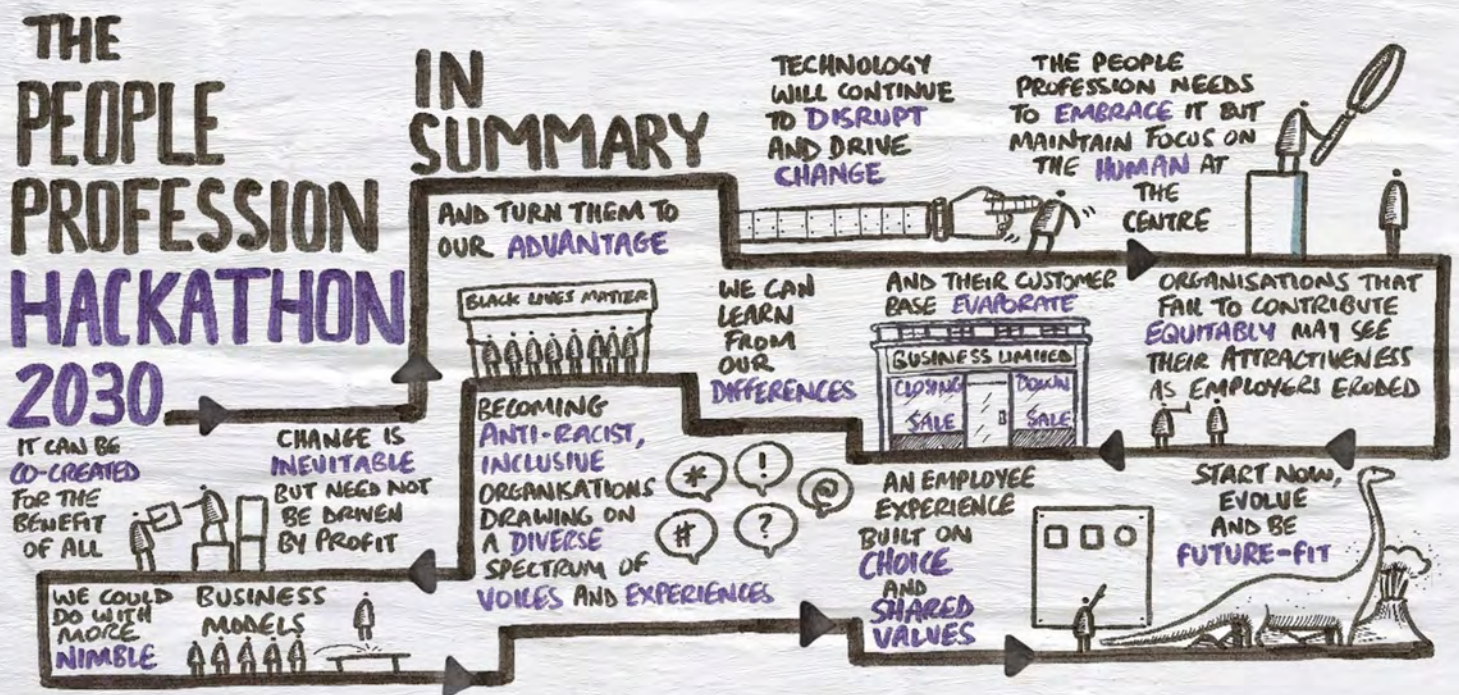 THE
PEOPLE
PROFESSION
HACKATHON
2030
IN
SUMMARY
AND TURN THEM TO
OUR ADVANTAGE
TECHNOLOGY
WILL CONTINUE
TO DISRUPT
AND DRIVE
CHANGE
THE PEOPLE
PROFESSION NEEDS
TO EMBRACE IT BUT
MAINTAIN FOCUS ON
THE HUMAN AT
THE
CENTRE
ORGANISATIONS THAT
FAIL TO CONTRIBUTE
EQUITABLY MAY SEE
THEIR ATTRACTIVENESS
AS EMPLOYERS ERODED
AND THEIR CUSTOMER
BASE EVAPORATE
BUSINESS LIMITED
CLOSING DOWN
SALE SALE
WE CAN
LEARN
FROM
OUR
DIFFERENCES
BLACK LIVES MATTER
BECOMING
ANTI-RACIST,
INCLUSIVE
ORGANISATIONS
DRAWING ON
A DIVERSE
SPECTRUM OF
VOICES AND EXPERIENCES
* ! @
# ?
CHANGE IS
INEVITABLE
BUT NEED NOT
BE DRIVEN
BY PROFIT
IT CAN BE
CO-CREATED
FOR THE
BENEFIT
OF ALL
WE COULD
DO WITH
MORE
NIMBLE
BUSINESS
MODELS
AN EMPLOYEE
EXPERIENCE
BUILT ON
CHOICE
AND
SHARED
VALUES
START NOW,
EVOLVE
AND BE
FUTURE-FIT